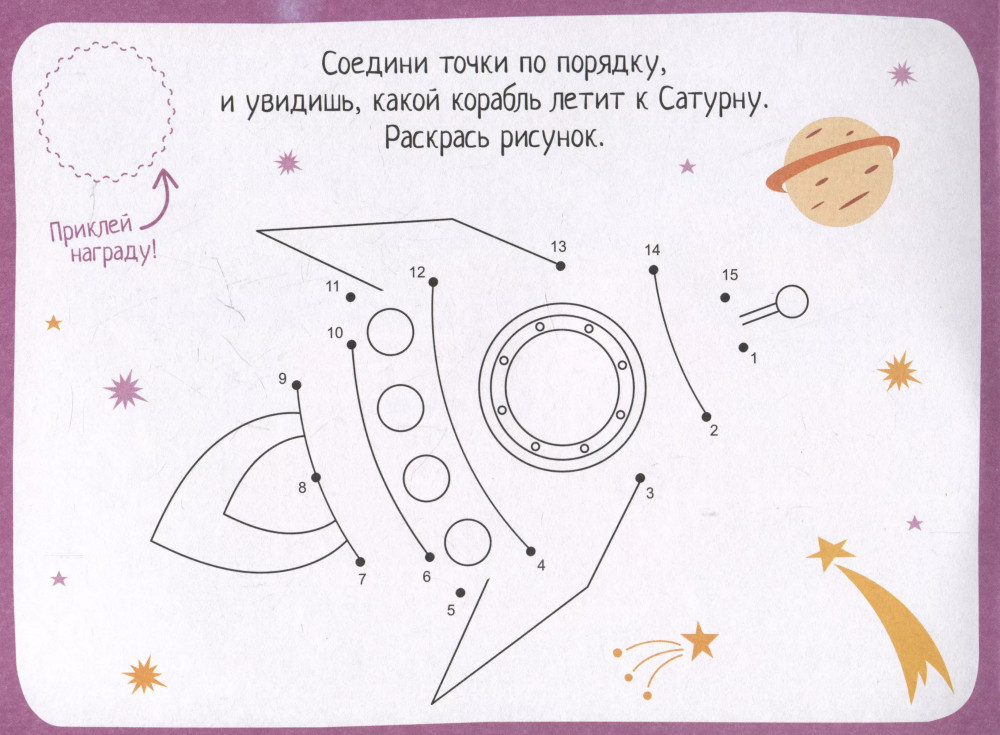 Соедини точки по порядку,
и увидишь, какой корабль летит к Сатурну.
Раскрась рисунок.
Приклей
награду!
13
14
12
15
11
10
1
9
2
8
3
4
6
7
5